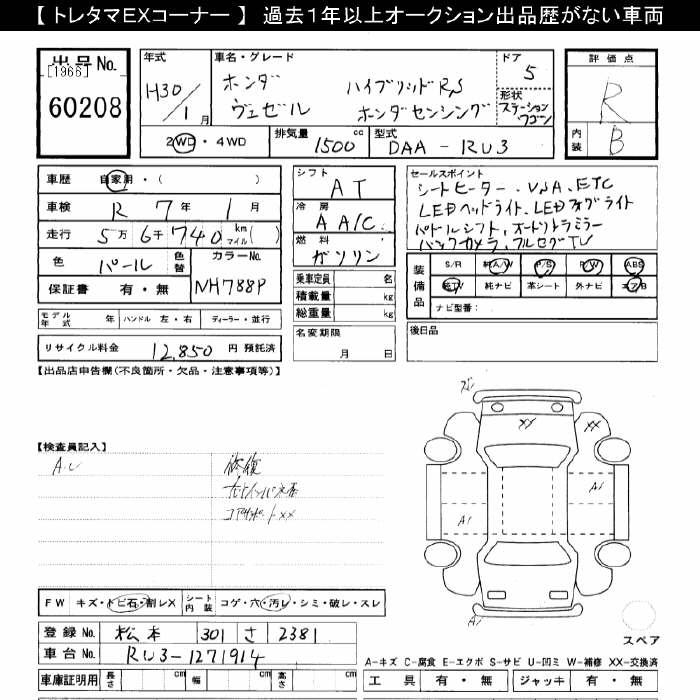 【 トレタマEXコーナー 】 過去１年以上オークション出品歴がない車両
出品No. [1966] 60208
年式 H30/1月
車名・グレード ホンダ ハイブリッドRS
ヴェゼル ホンダセンシング
ドア 5
形状 ステーションワゴン
評価点 R
内装 B
2WD・4WD 排気量 1500 cc 型式 DAA-RU3
車歴 自家用・( )
車検 R 7年 1月
走行 5万 6千 740 km マイル( )
色 パール 色替 カラーNo. NH788P
保証書 有・無
モデル年式 年 ハンドル 左・右 ディーラー・並行
リサイクル料金 12,850 円 預託済
シフト AT
冷房 A A/C
燃料 ガソリン
乗車定員 名
積載量 kg
総重量 kg
名変期限 月 日
セールスポイント
シートヒーター、VSA、ETC
LEDヘッドライト、LEDフォグライト
パドルシフト、オートリトラミラー
バックカメラ、フルセグTV
装備品 S/R 純A/W P/S P/W ABS
純TV 純ナビ 革シート 外ナビ エアB
ナビ型番:
後日品
【出品店申告欄(不良箇所・欠品・注意事項等)】
【検査員記入】
A.U 修復
コアサポートXX
XX XX
A1
A1
A1
スペア
FW キズ・トビ石・割レX シート内装 コゲ・穴・汚レ・シミ・破レ・スレ
登録No. 松本 301 さ 2381
車台No. RU3-1271914
車庫証明用 長さ cm 幅 cm 高さ cm
A-キズ C-腐食 E-エクボ S-サビ U-凹ミ W-補修 XX-交換済
工具 有・無 ジャッキ 有・無